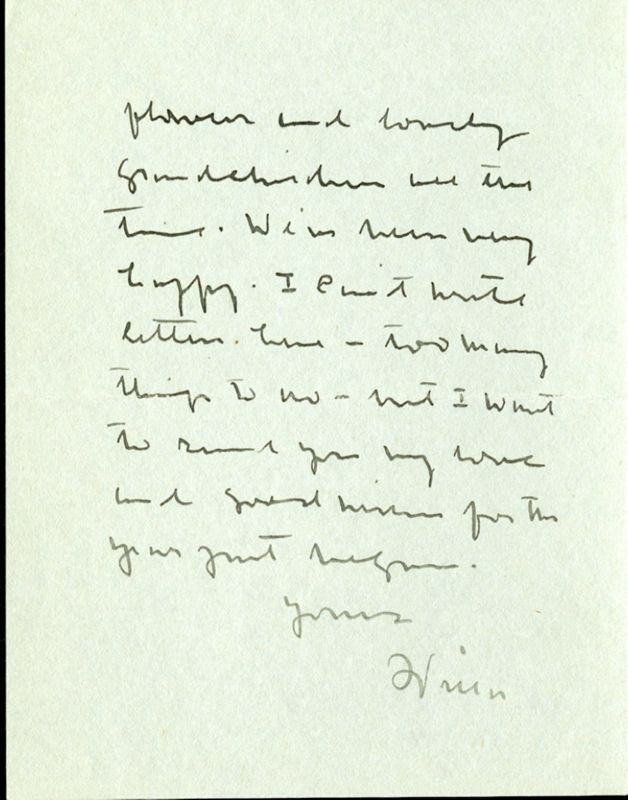 flowers and lovely
grandchildren all the
time. We've been very
happy. I can't write
letters here – too many
things to do – but I want
to send you my love
and good wishes for the
year just begun.
Yours